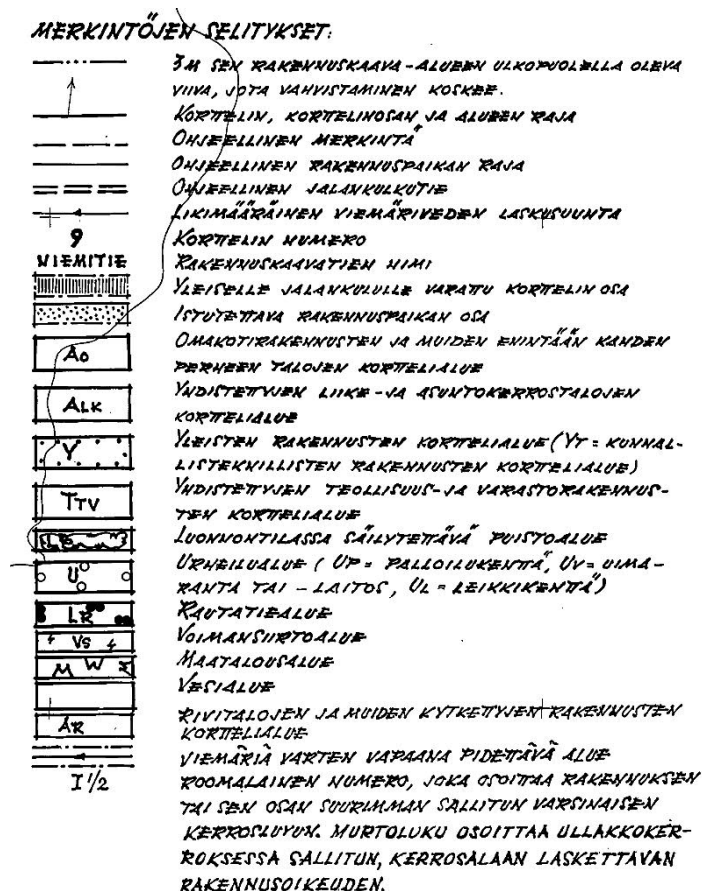 MERKINTÖJEN SELITYKSET:
3M SEN RAKENNUSKAAVA-ALUEEN ULKOPUOLELLA OLEVA
VIIVA, JOTA VAHVISTAMINEN KOSKEE.
KORTTELIN, KORTTELINOSAN JA ALUEEN RAJA
OHJEELLINEN MERKINTÄ
OHJEELLINEN RAKENNUSPAIKAN RAJA
OHJEELLINEN JALANKULKUTIE
LIKIMÄÄRÄINEN VIEMÄRIVEDEN LASKUSUUNTA
9 KORTTELIN NUMERO
NIEMITIE RAKENNUSKAAVATIEN NIMI
YLEISELLE JALANKULULLE VARATTU KORTTELIN OSA
ISTUTETTAVA RAKENNUSPAIKAN OSA
AO OMAKOTIRAKENNUSTEN JA MUIDEN ENINTÄÄN KAHDEN
PERHEEN TALOJEN KORTTELIALUE
ALK YHDISTETTYJEN LIIKE-JA ASUNTOKERROSTALOJEN
KORTTELIALUE
Y YLEISTEN RAKENNUSTEN KORTTELIALUE (YT = KUNNAL-
LISTEKNILLISTEN RAKENNUSTEN KORTTELIALUE)
TTV YHDISTETTYJEN TEOLLISUUS-JA VARASTORAKENNUS-
TEN KORTTELIALUE
LUONNONTILASSA SÄILYTETTÄVÄ PUISTOALUE
U URHEILUALUE (UP = PALLOILUKENTTÄ, UV = UIMA-
RANTA TAI -LAITOS, UL = LEIKKIKENTTÄ)
LR RAUTATIEALUE
VS VOIMANSIIRTOALUE
M W MAATALOUSALUE
VESIALUE
AR RIVITALOJEN JA MUIDEN KYTKETTYJEN RAKENNUSTEN
KORTTELIALUE
VIEMÄRIÄ VARTEN VAPAANA PIDETTÄVÄ ALUE
I 1/2 ROOMALAINEN NUMERO, JOKA OSOITTAA RAKENNUKSEN
TAI SEN OSAN SUURIMMAN SALLITUN VARSINAISEN
KERROSLUVUN. MURTOLUKU OSOITTAA ULLAKKOKER-
ROKSESSA SALLITUN, KERROSALAAN LASKETTAVAN
RAKENNUSOIKEUDEN.